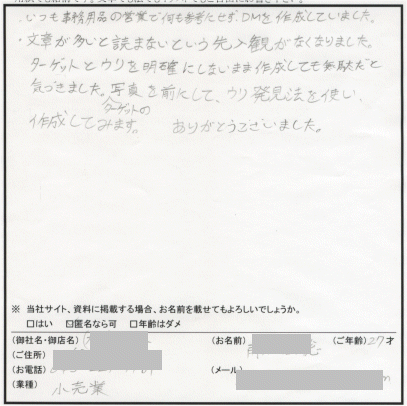 ・いつも事務用品の営業で何も参考とせずDMを作成していました。
・文章が多いと読まないという先入観がなくなりました。
ターゲットとウリを明確にしないまま作成しても無駄だと
気づきました。写真を前にして、ターゲットのウリ発見法を使い、
作成してみます。 ありがとうございました。
※ 当社サイト、資料に掲載する場合、お名前を載せてもよろしいでしょうか。
□はい ☑匿名なら可 □年齢はダメ
(御社名・御店名) (お名前) (ご年齢)27才
(ご住所)
(お電話) (メール) m
(業種) 小売業